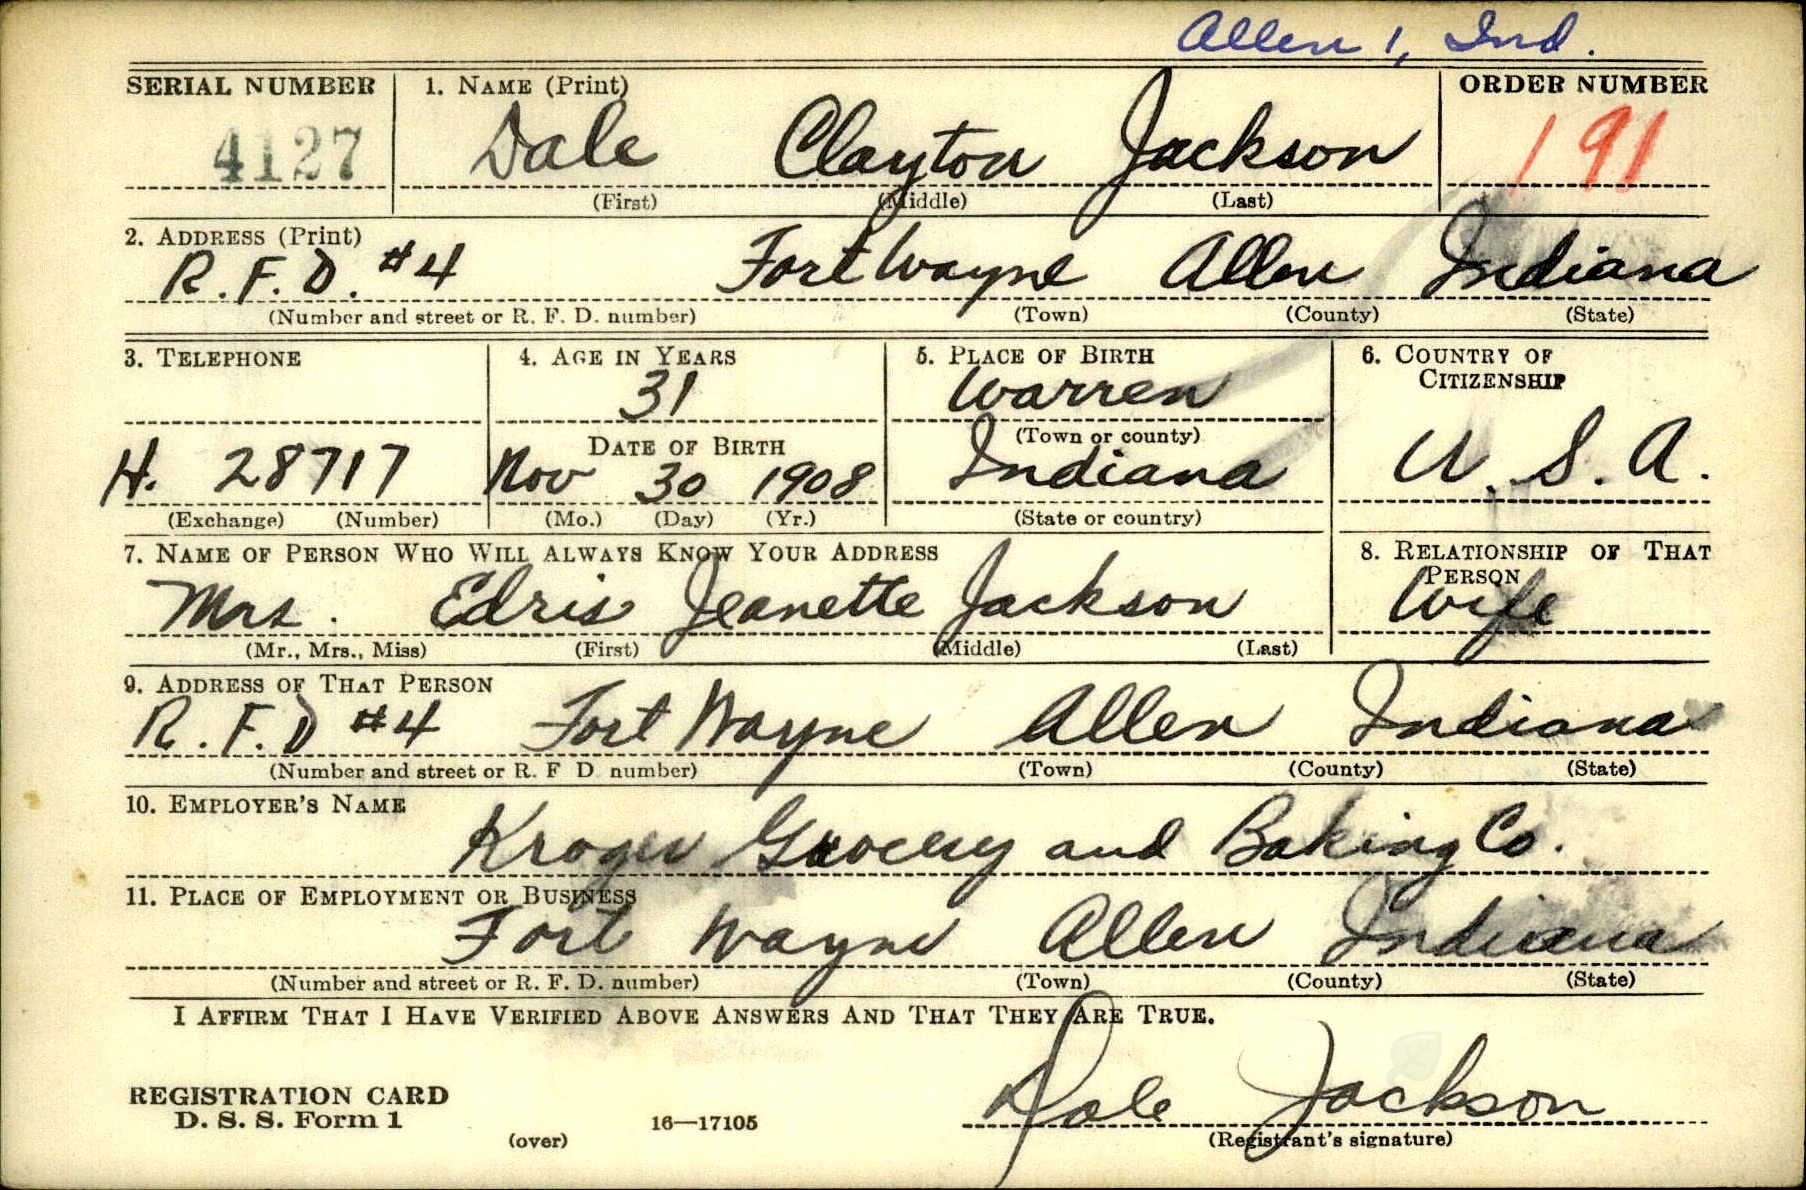 Allen 1, Ind.
SERIAL NUMBER 1. NAME (Print) ORDER NUMBER
4127 Dale Clayton Jackson 191
(First) (Middle) (Last)
2. ADDRESS (Print)
R.F.D. #4 Fort Wayne Allen Indiana
(Number and street or R. F. D. number) (Town) (County) (State)
3. TELEPHONE 4. AGE IN YEARS 5. PLACE OF BIRTH 6. COUNTRY OF
CITIZENSHIP
31 Warren
DATE OF BIRTH (Town or county)
H. 28717 Nov 30 1908 Indiana U.S.A.
(Exchange) (Number) (Mo.) (Day) (Yr.) (State or country)
7. NAME OF PERSON WHO WILL ALWAYS KNOW YOUR ADDRESS 8. RELATIONSHIP OF THAT
PERSON
Mrs. Edris Jeanette Jackson Wife
(Mr., Mrs., Miss) (First) (Middle) (Last)
9. ADDRESS OF THAT PERSON
R.F.D #4 Fort Wayne Allen Indiana
(Number and street or R. F D number) (Town) (County) (State)
10. EMPLOYER'S NAME
Kroger Grocery and Baking Co.
11. PLACE OF EMPLOYMENT OR BUSINESS
Fort Wayne Allen Indiana
(Number and street or R. F. D. number) (Town) (County) (State)
I AFFIRM THAT I HAVE VERIFIED ABOVE ANSWERS AND THAT THEY ARE TRUE.
REGISTRATION CARD
D. S. S. Form 1 16—17105 Dale Jackson
(over) (Registrant's signature)